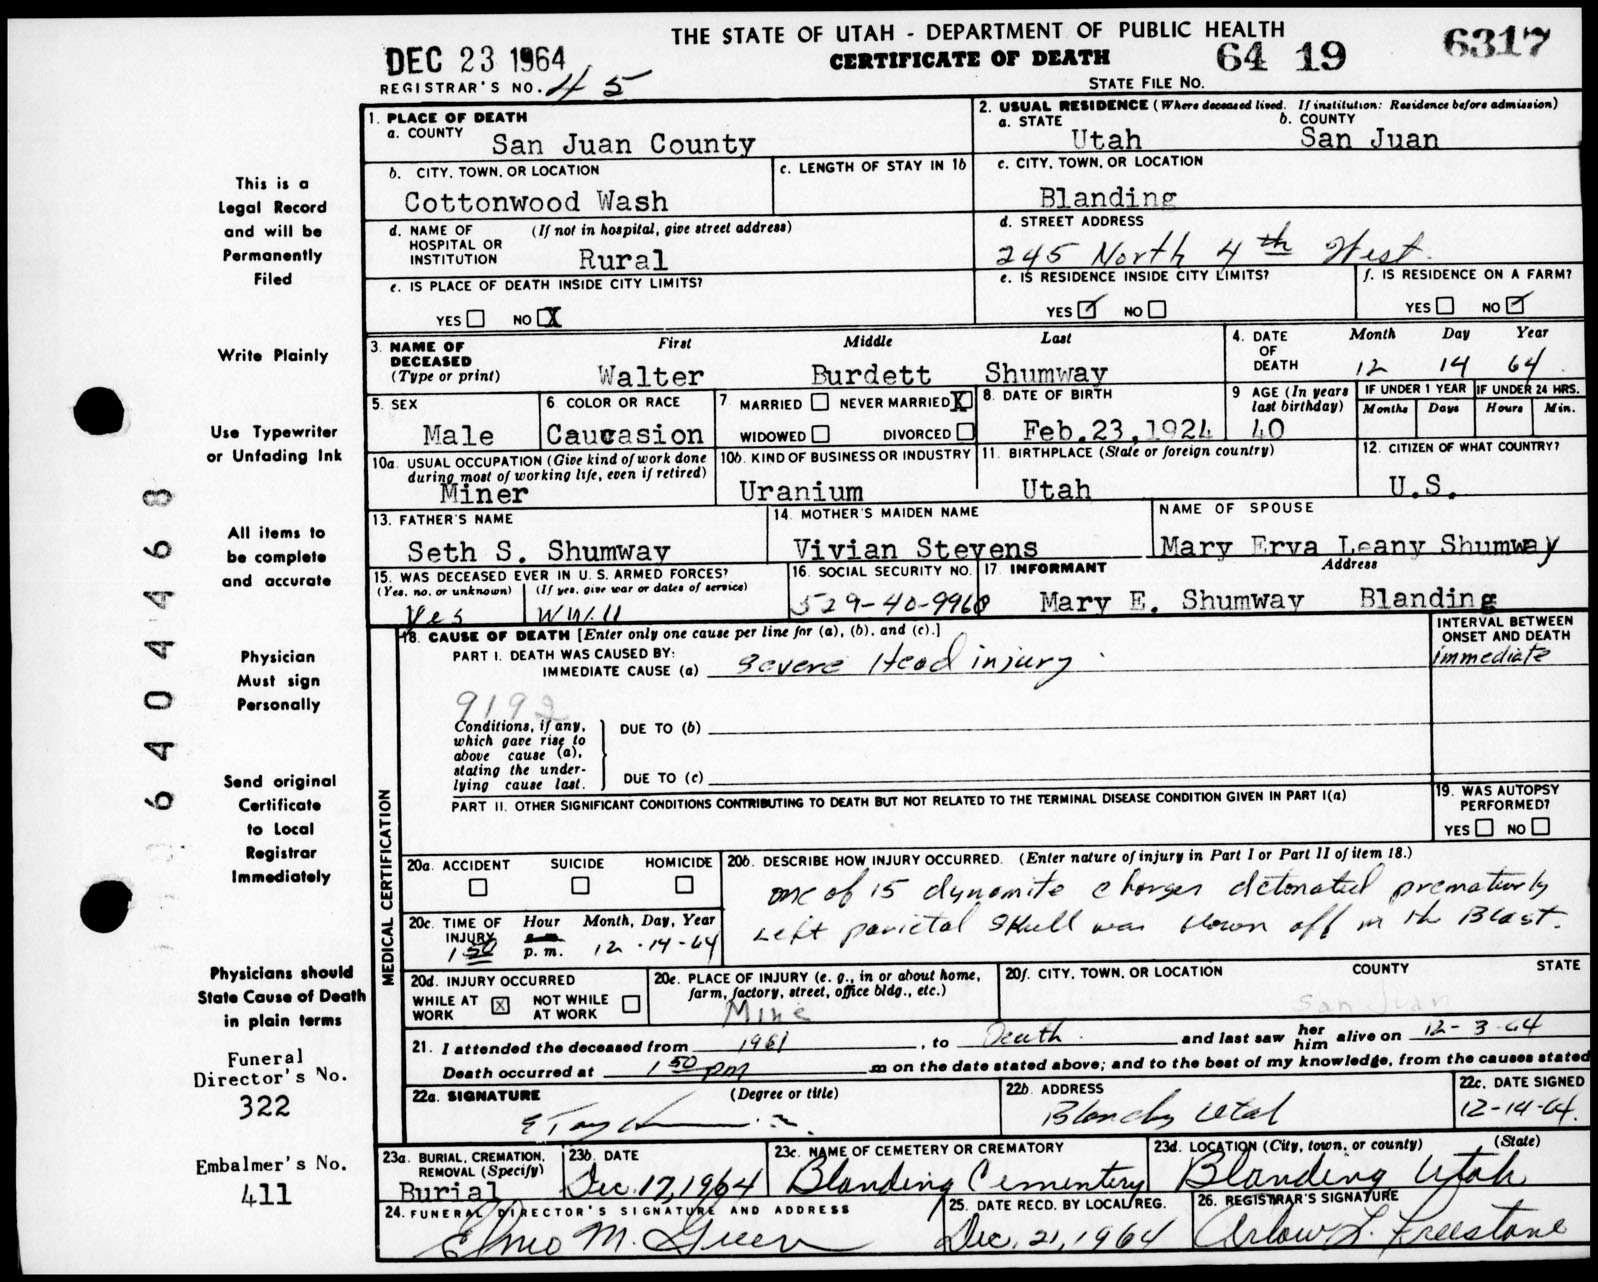 THE STATE OF UTAH - DEPARTMENT OF PUBLIC HEALTH
CERTIFICATE OF DEATH
DEC 23 1964
64 19
6317
REGISTRAR'S NO. 45
STATE FILE NO.
This is a
Legal Record
and will be
Permanently
Filed
Write Plainly
Use Typewriter
or Unfading Ink
All items to
be complete
and accurate
Physician
Must sign
Personally
Send original
Certificate
to Local
Registrar
Immediately
Physicians should
State Cause of Death
in plain terms
Funeral
Director's No.
322
Embalmer's No.
411
6404468
1. PLACE OF DEATH
a. COUNTY
San Juan County
2. USUAL RESIDENCE (Where deceased lived. If institution: Residence before admission)
a. STATE
Utah
b. COUNTY
San Juan
b. CITY, TOWN, OR LOCATION
Cottonwood Wash
c. LENGTH OF STAY IN 1b
c. CITY, TOWN, OR LOCATION
Blanding
d. NAME OF HOSPITAL OR INSTITUTION
(If not in hospital, give street address)
Rural
d. STREET ADDRESS
245 North 4th West.
e. IS PLACE OF DEATH INSIDE CITY LIMITS?
YES NO X
e. IS RESIDENCE INSIDE CITY LIMITS?
YES NO
f. IS RESIDENCE ON A FARM?
YES NO
3. NAME OF DECEASED
(Type or print)
First Middle Last
Walter Burdett Shumway
4. DATE OF DEATH
Month Day Year
12 14 64
5. SEX
Male
6. COLOR OR RACE
Caucasion
7. MARRIED NEVER MARRIED X
WIDOWED DIVORCED
8. DATE OF BIRTH
Feb.23,1924
9 AGE (In years last birthday)
40
IF UNDER 1 YEAR
Months Days
IF UNDER 24 HRS.
Hours Min.
10a. USUAL OCCUPATION (Give kind of work done during most of working life, even if retired)
Miner
10b. KIND OF BUSINESS OR INDUSTRY
Uranium
11. BIRTHPLACE (State or foreign country)
Utah
12. CITIZEN OF WHAT COUNTRY?
U.S.
13. FATHER'S NAME
Seth S. Shumway
14. MOTHER'S MAIDEN NAME
Vivian Stevens
NAME OF SPOUSE
Mary Erva Leany Shumway
15. WAS DECEASED EVER IN U. S. ARMED FORCES?
(Yes, no, or unknown) (If yes, give war or dates of service)
Yes WW.II
16. SOCIAL SECURITY NO.
529-40-9968
17 INFORMANT Address
Mary E. Shumway Blanding
MEDICAL CERTIFICATION
18. CAUSE OF DEATH [Enter only one cause per line for (a), (b), and (c).]
INTERVAL BETWEEN ONSET AND DEATH
PART I. DEATH WAS CAUSED BY:
IMMEDIATE CAUSE (a) Severe Head injury.
immediate
9192
Conditions, if any, which gave rise to above cause (a), stating the underlying cause last.
DUE TO (b)
DUE TO (c)
PART II. OTHER SIGNIFICANT CONDITIONS CONTRIBUTING TO DEATH BUT NOT RELATED TO THE TERMINAL DISEASE CONDITION GIVEN IN PART I(a)
19. WAS AUTOPSY PERFORMED?
YES NO
20a. ACCIDENT SUICIDE HOMICIDE
20b. DESCRIBE HOW INJURY OCCURRED. (Enter nature of injury in Part I or Part II of item 18.)
one of 15 dynamite charges detonated prematurely
Left parietal skull was blown off in the Blast.
20c. TIME OF INJURY Hour Month, Day, Year
1 50 a.m. p. m. 12-14-64
20d. INJURY OCCURRED
WHILE AT WORK X NOT WHILE AT WORK
20e. PLACE OF INJURY (e. g., in or about home, farm, factory, street, office bldg., etc.)
Mine
20f. CITY, TOWN, OR LOCATION COUNTY STATE
San Juan
21. I attended the deceased from 1961, to Death. and last saw her him alive on 12-3-64
Death occurred at 1 50 pm m on the date stated above; and to the best of my knowledge, from the causes stated
22a. SIGNATURE (Degree or title)
22b. ADDRESS
Blanding Utah
22c. DATE SIGNED
12-14-64.
23a. BURIAL, CREMATION, REMOVAL (Specify)
Burial
23b. DATE
Dec. 17, 1964
23c. NAME OF CEMETERY OR CREMATORY
Blanding Cementery
23d. LOCATION (City, town, or county) (State)
Blanding Utah
24. FUNERAL DIRECTOR'S SIGNATURE AND ADDRESS
M. Green
25. DATE RECD. BY LOCAL REG.
Dec. 21, 1964
26. REGISTRAR'S SIGNATURE
Arlow L. Freestone